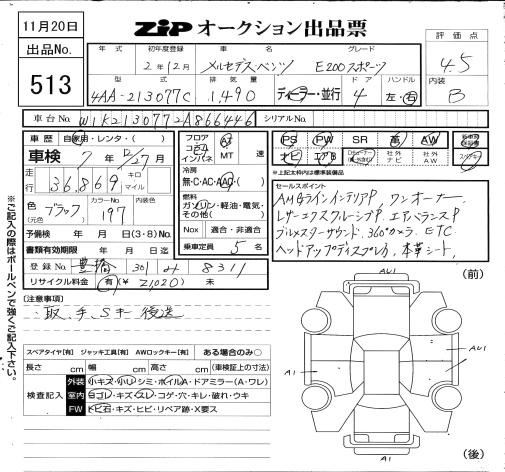 11月20日
ZIP オークション出品票
出品No.
513
評価点
4.5
内装
B
年式 初年度登録 車名 グレード
2年12月 メルセデス・ベンツ E200スポーツ
型式 排気量 ドア ハンドル
4AA-213077C 1,490 ディーラー・並行 4 左・右
車台No. W1K2130772A866446 シリアルNo.
車歴 自家用・レンタ・( )
車検 7年12/27月
走行 36,869 キロ マイル
色 (元色) ブラック カラーNo. 197
予備検 年 月 日(3・8)No.
書類有効期限 年 月 日
登録No. 豊橋 301 8311
リサイクル料金 有(¥ 21,020) 未
フロア コラム インパネ AT MT 速
冷房 無・C・AC・AAC・( )
燃料 ガソリン・軽油・電気・その他( )
Nox 適合・非適合
乗車定員 5名
PS PW SR 革 AW
ナビ エアB 社外ナビ 社外AW
※上記太枠内は標準装備品
セールスポイント
AMGラインインテリアP、ワンオーナー、
レザーエクスクルーシブP、エアバランスP
ブルメスターサウンド、360°カメラ、ETC
ヘッドアップディスプレイ、本革シート、
※ご記入の際はボールペンで強くご記入下さい。
(注意事項)
取、手、Sキー 後送
スペアタイヤ[有] ジャッキ工具[有] AWロックキー[有] ある場合のみ○
長さ cm 幅 cm 高さ cm (車検証上の寸法)
検査記入
外装 小キズ・小U・シミ・ボイルA・ドアミラー(A・ワレ)
室内 白ゴレ・キズ・スレ・コゲ・穴・キレ・破れ・ウキ
FW トビ石・キズ・ヒビ・リペア跡・X要ス
(前)
AU1
AU1
A1
A1
(後)